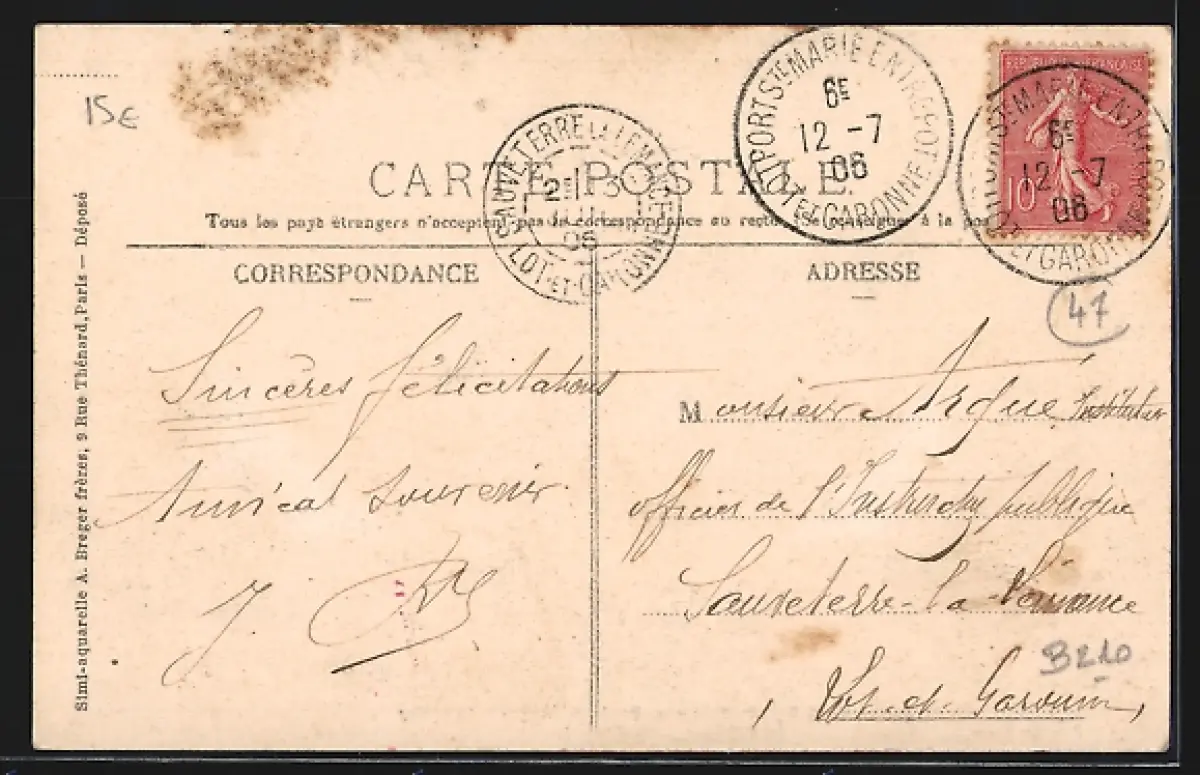 15€
CARTE POSTALE
Tous les pays étrangers n'acceptent pas la correspondance au recto (Se renseigner à la pos
SAUVETERRE LA LEMANCE
LOT-ET-GARONNE
2E 13
06
PORT STE MARIE ENTREPOT
6E
12 -7
06
LOT ET GARONNE
REPUBLIQUE FRANÇAISE
10
6E
12 -7
06
LOT ET GARONNE
CORRESPONDANCE
ADRESSE
47
Sincères félicitations
Amical souvenir
J.
Monsieur Argué Instituteur
officier de l'Instruction publique
Sauveterre-la-Lémance
Lot-et-Garonne
B210
Simi-aquarelle A. Breger frères, 9 Rue Thénard, Paris — Déposé